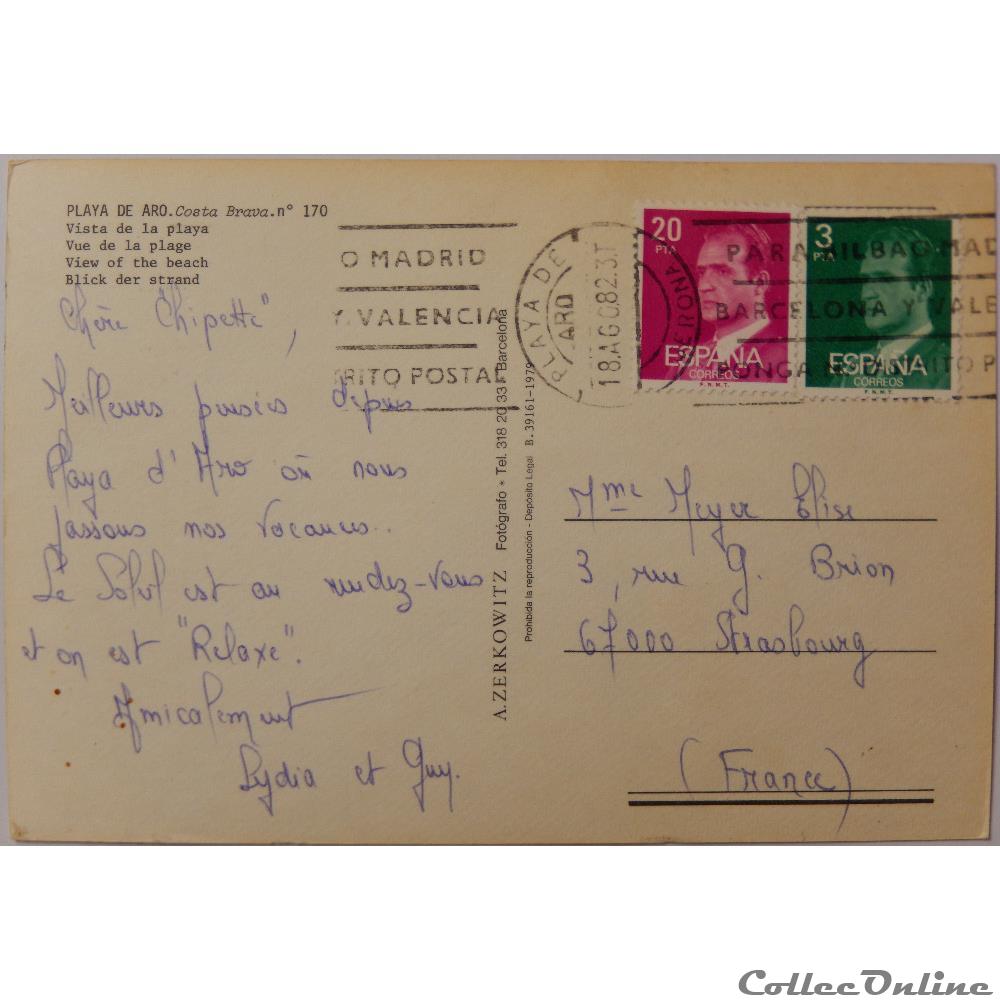 PLAYA DE ARO. Costa Brava. n° 170
Vista de la playa
Vue de la plage
View of the beach
Blick der strand
Chère "Chipette",
Meilleurs pensées depuis
Playa d'Aro où nous
passons nos vacances..
Le Soleil est au rendez-vous
et on est "Relaxe".
Amicalement
Lydia et Guy.
O MADRID
Y VALENCIA
RITO POSTAL
PLAYA DE ARO
GERONA
18.AGO.82.3T
20 PTA
ESPAÑA
CORREOS
F.N.M.T.
3 PTA
ESPAÑA
CORREOS
F.N.M.T.
PARA BILBAO MAD
BARCELONA Y VALE
PONGA DISTRITO P
A. ZERKOWITZ Fotógrafo * Tel. 318 20 33 * Barcelona
Prohibida la reproducción - Depósito Legal B. 39161-1979
Mme Meyer Elise
3, rue G. Brion
67000 Strasbourg
(France)
CollecOnline